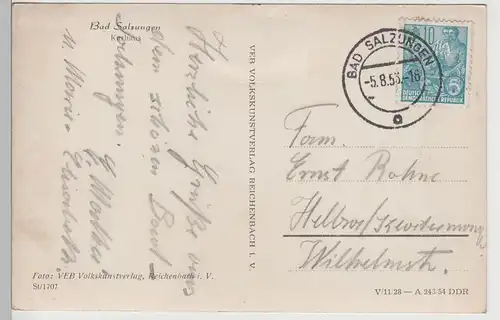 Bad Salzungen
Kurhaus
Herzliche Grüße aus
dem schönen Bad
Salzungen.
u. Maria Elisabeth.
Foto: VEB Volkskunstverlag, Reichenbach i. V.
St/1707
VEB VOLKSKUNSTVERLAG REICHENBACH i. V
BAD SALZUNGEN
-5.8.55.-18
a
10
5
DEUTSCHE
DEMOKRATISCHE REPUBLIK
Fam.
Ernst Rohne
Helbra/
Wilhelmstr.
V/11/28 — A 243/54 DDR